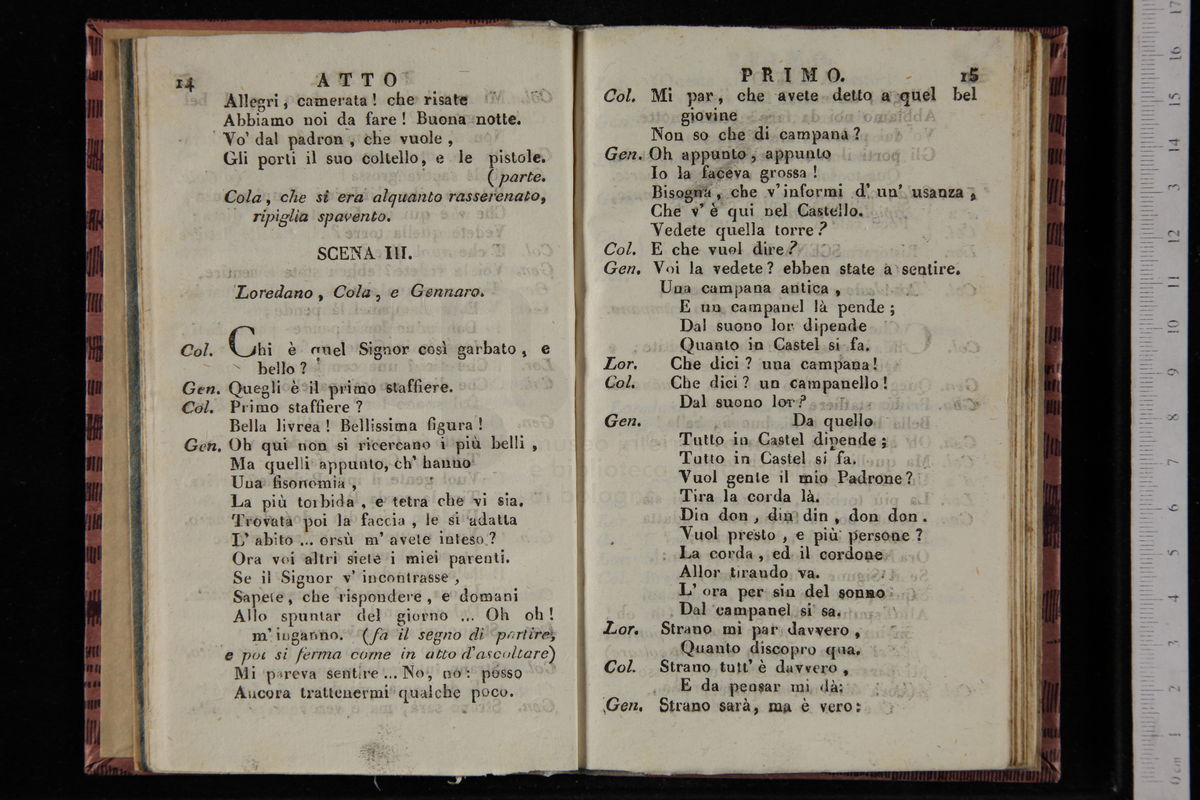 14 ATTO
Allegri, camerata! che risate
Abbiamo noi da fare! Buona notte.
Vo' dal padron, che vuole,
Gli porti il suo coltello, e le pistole.
(parte.
Cola, che si era alquanto rasserenato,
ripiglia spavento.
SCENA III.
Loredano, Cola, e Gennaro.
Col. Chi è quel Signor così garbato, e
bello?
Gen. Quegli è il primo staffiere.
Col. Primo staffiere?
Bella livrea! Bellissima figura!
Gen. Oh qui non si ricercano i più belli,
Ma quelli appunto, ch' hanno
Una fisonomia,
La più torbida, e tetra che vi sia.
Trovata poi la faccia, le si adatta
L' abito ... orsù m' avete inteso?
Ora voi altri siete i miei parenti.
Se il Signor v' incontrasse,
Sapete, che rispondere, e domani
Allo spuntar del giorno ... Oh oh!
m' inganno. (fa il segno di partire,
e poi si ferma come in atto d'ascoltare)
Mi pareva sentire ... No, no: posso
Ancora trattenermi qualche poco.
PRIMO. 15
Col. Mi par, che avete detto a quel bel
giovine
Non so che di campana?
Gen. Oh appunto, appunto
Io la faceva grossa!
Bisogna, che v' informi d' un' usanza,
Che v' è qui nel Castello.
Vedete quella torre?
Col. E che vuol dire?
Gen. Voi la vedete? ebben state a sentire.
Una campana antica,
E un campanel là pende;
Dal suono lor dipende
Quanto in Castel si fa.
Lor. Che dici? una campana!
Col. Che dici? un campanello!
Dal suono lor?
Gen. Da quello
Tutto in Castel dipende;
Tutto in Castel si fa.
Vuol gente il mio Padrone?
Tira la corda là.
Din don, din din, don don.
Vuol presto, e più persone?
La corda, ed il cordone
Allor tirando va.
L' ora per sin del sonno
Dal campanel si sa.
Lor. Strano mi par davvero,
Quanto discopro qua.
Col. Strano tutt' è davvero,
E da pensar mi dà:
Gen. Strano sarà, ma è vero: